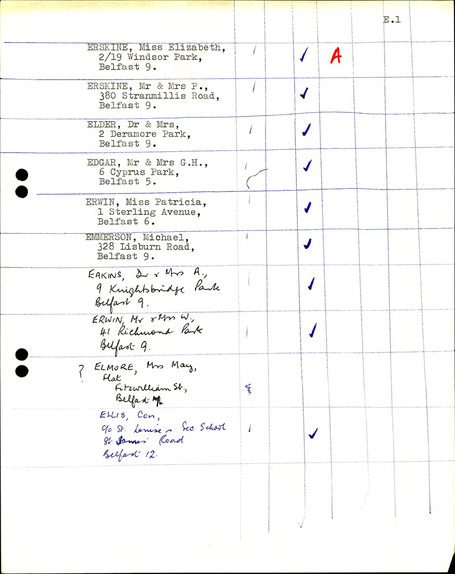 E.1
ERSKINE, Miss Elizabeth,
2/19 Windsor Park,
Belfast 9.
A
ERSKINE, Mr & Mrs P.,
380 Stranmillis Road,
Belfast 9.
ELDER, Dr & Mrs,
2 Deramore Park,
Belfast 9.
EDGAR, Mr & Mrs G.H.,
6 Cyprus Park,
Belfast 5.
ERWIN, Miss Patricia,
1 Sterling Avenue,
Belfast 6.
EMMERSON, Michael,
328 Lisburn Road,
Belfast 9.
EAKINS, Dr & Mrs A.,
9 Knightsbridge Park
Belfast 9.
ERWIN, Mr & Mrs W,
41 Richmond Park
Belfast 9.
? ELMORE, Mrs May,
Flat
Fitzwilliam St,
Belfast
ELLIS, Con,
c/o St. Louise's Sec School
St James Road
Belfast 12.